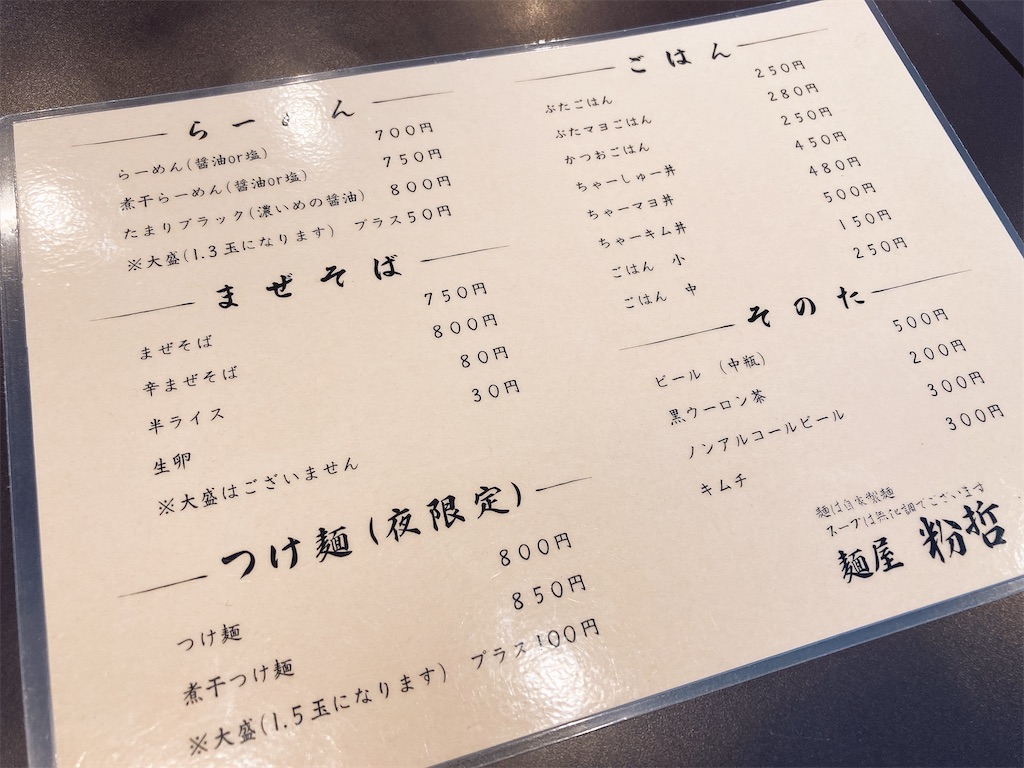 らーめん
らーめん(醤油or塩) 700円
煮干らーめん(醤油or塩) 750円
たまりブラック(濃いめの醤油) 800円
※大盛(1.3玉になります) プラス50円
まぜそば
まぜそば 750円
辛まぜそば 800円
半ライス 80円
生卵 30円
※大盛はございません
つけ麺(夜限定)
つけ麺 800円
煮干つけ麺 850円
※大盛(1.5玉になります) プラス100円
ごはん
ぶたごはん 250円
ぶたマヨごはん 280円
かつおごはん 250円
ちゃーしゅー丼 450円
ちゃーマヨ丼 480円
ちゃーキム丼 500円
ごはん 小 150円
ごはん 中 250円
そのた
ビール (中瓶) 500円
黒ウーロン茶 200円
ノンアルコールビール 300円
キムチ 300円
麺は自家製麺
スープは無化調でございます
麺屋 粉哲